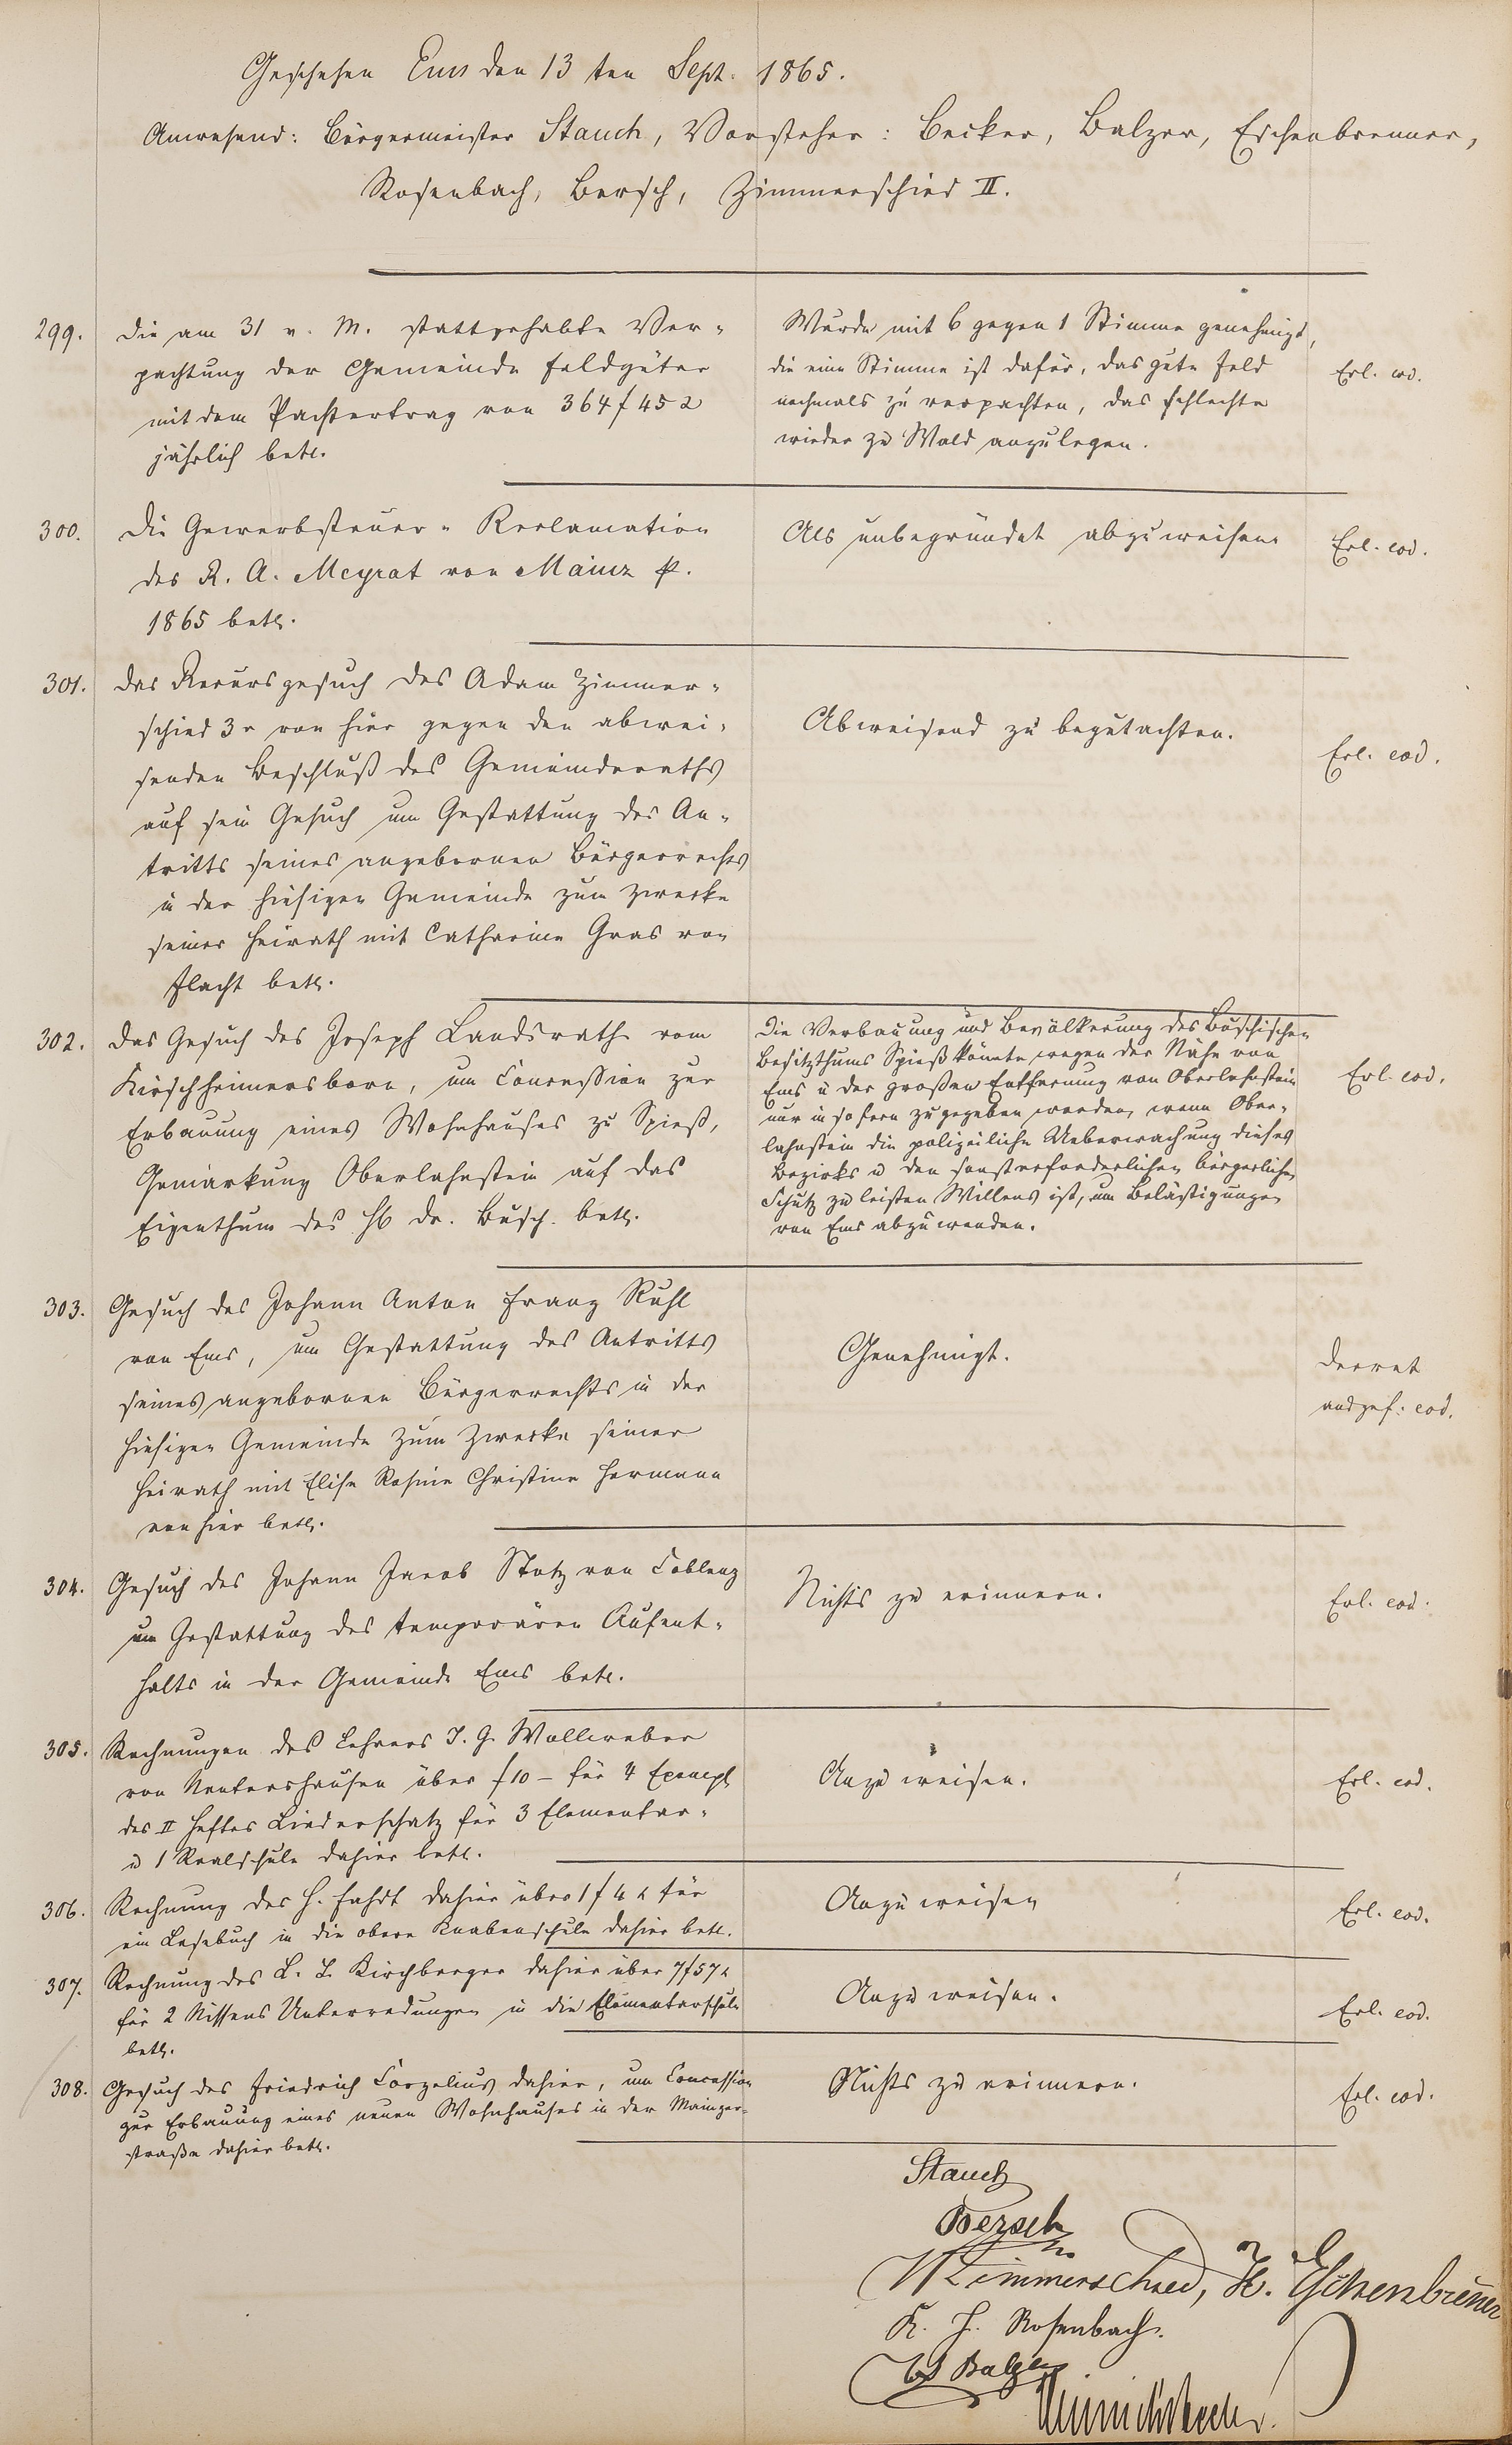 Geschehen Ems den 13 ten Sept. 1865.
Anwesend: Bürgermeister Stauch, Vorsteher: Becker, Balzer, Eschenbrenner,
Rosenbach, Bersch, Zimmerschied II.
299.
Die am 31 v. M. stattgehabte Ver-
pachtung der Gemeinde Feldgüter
mit dem Pachtertrag von 364 f 45 x
jährlich betr.
Wurde mit 6 gegen 1 Stimme genehmigt,
die eine Stimme ist dafür, das gute Feld
nochmals zu verpachten, das schlechte
wieder zu Wald anzulegen.
Erl. eod.
300.
Die Gewerbsteuer-Reclamation
des R. A. Meyrat von Mainz p.
1865 betr.
Als unbegründet abzuweisen.
Erl. eod.
301.
Das Recursgesuch des Adam Zimmer-
schied 3r von hier gegen den abwei-
senden Beschluß des Gemeinderaths
auf sein Gesuch um Gestattung des An-
tritts seines angebornen Bürgerrechts
in der hiesigen Gemeinde zum Zwecke
seiner Heirath mit Catharine Gras von
Flacht betr.
Abweisend zu begutachten.
Erl. eod.
302.
Das Gesuch des Joseph Landsrath vom
Kirschheimersborn, um Concession zur
Erbauung eines Wohnhauses zu Spieß,
Gemarkung Oberlahnstein auf das
Eigenthum des H Dr. Busch. betr.
Die Verbauung und Bevölkerung des Buschischen
Besitzthums Spieß könnte wegen der Nähe von
Ems u der großen Entfernung von Oberlahnstein
nur in so fern zugegeben werden, wenn Ober-
lahnstein die polizeiliche Ueberwachung dieses
Bezirks u den sonst erforderlichen bürgerlichen
Schutz zu leisten Willens ist, um Belästigungen
von Ems abzuwenden.
Erl. eod.
303.
Gesuch des Johann Anton Franz Ruhl
von Ems, um Gestattung des Antritts
seines angebornen Bürgerrechts in der
hiesigen Gemeinde zum Zwecke seiner
Heirath mit Elise Rosine Christine Hermann
von hier betr.
Genehmigt.
Decret
ausgef. eod.
304.
Gesuch des Johann Jacob Stotz von Coblenz
um Gestattung des temporären Aufent-
halts in der Gemeinde Ems betr.
Nichts zu erinnern.
Erl. eod.
305.
Rechnungen des Lehrers J. G. Wollweber
von Nentershausen über f 10 – für 4 Exempl
des II Heftes Liederschatz für 3 Elementar-
u 1 Realschule dahier betr.
Anzuweisen.
Erl. eod.
306.
Rechnung des H. Fahdt dahier über 1 f 4 x für
ein Lesebuch in die obere Knabenschule dahier betr.
Anzuweisen
Erl. eod.
307.
Rechnung des L. J. Kirchberger dahier über 7 f 57 x
für 2 Nissens Unterredungen in die Elementarschule
betr.
Anzuweisen.
Erl. eod.
308.
Gesuch des Friedrich Corzelius dahier, um Concession
zur Erbauung eines neuen Wohnhauses in der Mainzer-
straße dahier betr.
Nichts zu erinnern.
Erl. eod.
Stauch
Bersch
Zimmerschied, H. Eschenbrenner
K. H. Rosenbach.
Balzer